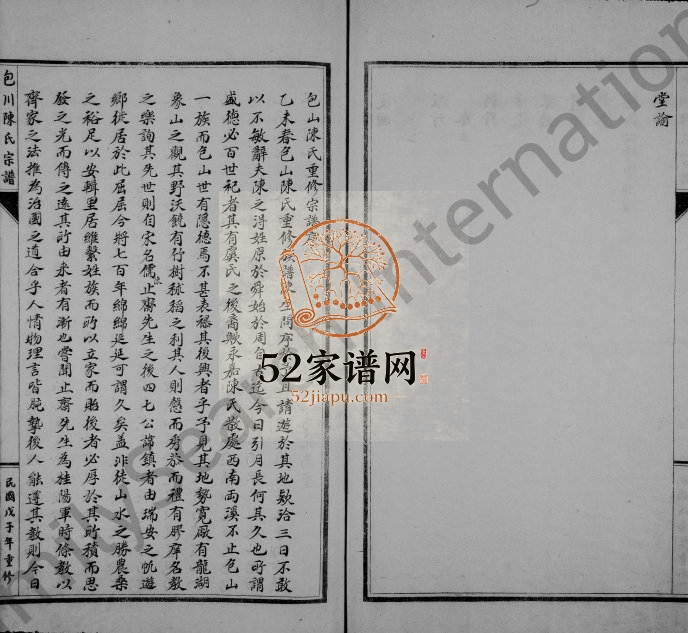 堂諭
包山陳氏重修宗譜
乙未春包山陳氏重修 譜 問序 且請遊於其地欵洽三日不敢
以不敏辭夫陳之得姓原於舜始於周自 迄今日引月長何其久也所謂
盛德必百世祀者其有虞氏之後裔歟永嘉陳氏散處西南兩溪不止包山
一族而包山世有隱德焉不甚表襮其後興者乎予見其地勢寬厰有龍湖
象山之觀其野沃饒有竹樹稌稻之利其人則愿而 恭而禮有膠庠名教
之樂詢其先世則自宋名儒止齋先生之後四七公諱鎮者由瑞安之帆遊
鄉徙居於此屈屈今將七百年綿綿延延可謂久矣盖非徒山水之勝農桑
之裕足以安輯里居維繫姓族而所以立家而貽後者必厚於其所積而思
發之光而傳之遠其所由来者有漸也嘗聞止齋先生為桂陽軍時條教以
齊家之法推為治國之道合乎人情物理言皆肫摯後人能遵其教則今日
包川陳氏宗譜
民國戊子年重修
52家谱网
52jiapu.com
FamilySearch International